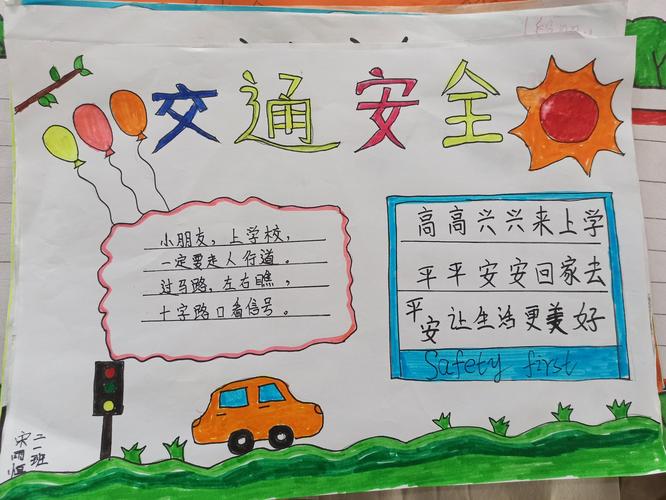 交通安全
小朋友，上学校，
一定要走人行道。
过马路，左右瞧，
十字路口看信号。
高高兴兴来上学
平平安安回家去
平安让生活更美好
Safety first
二一班